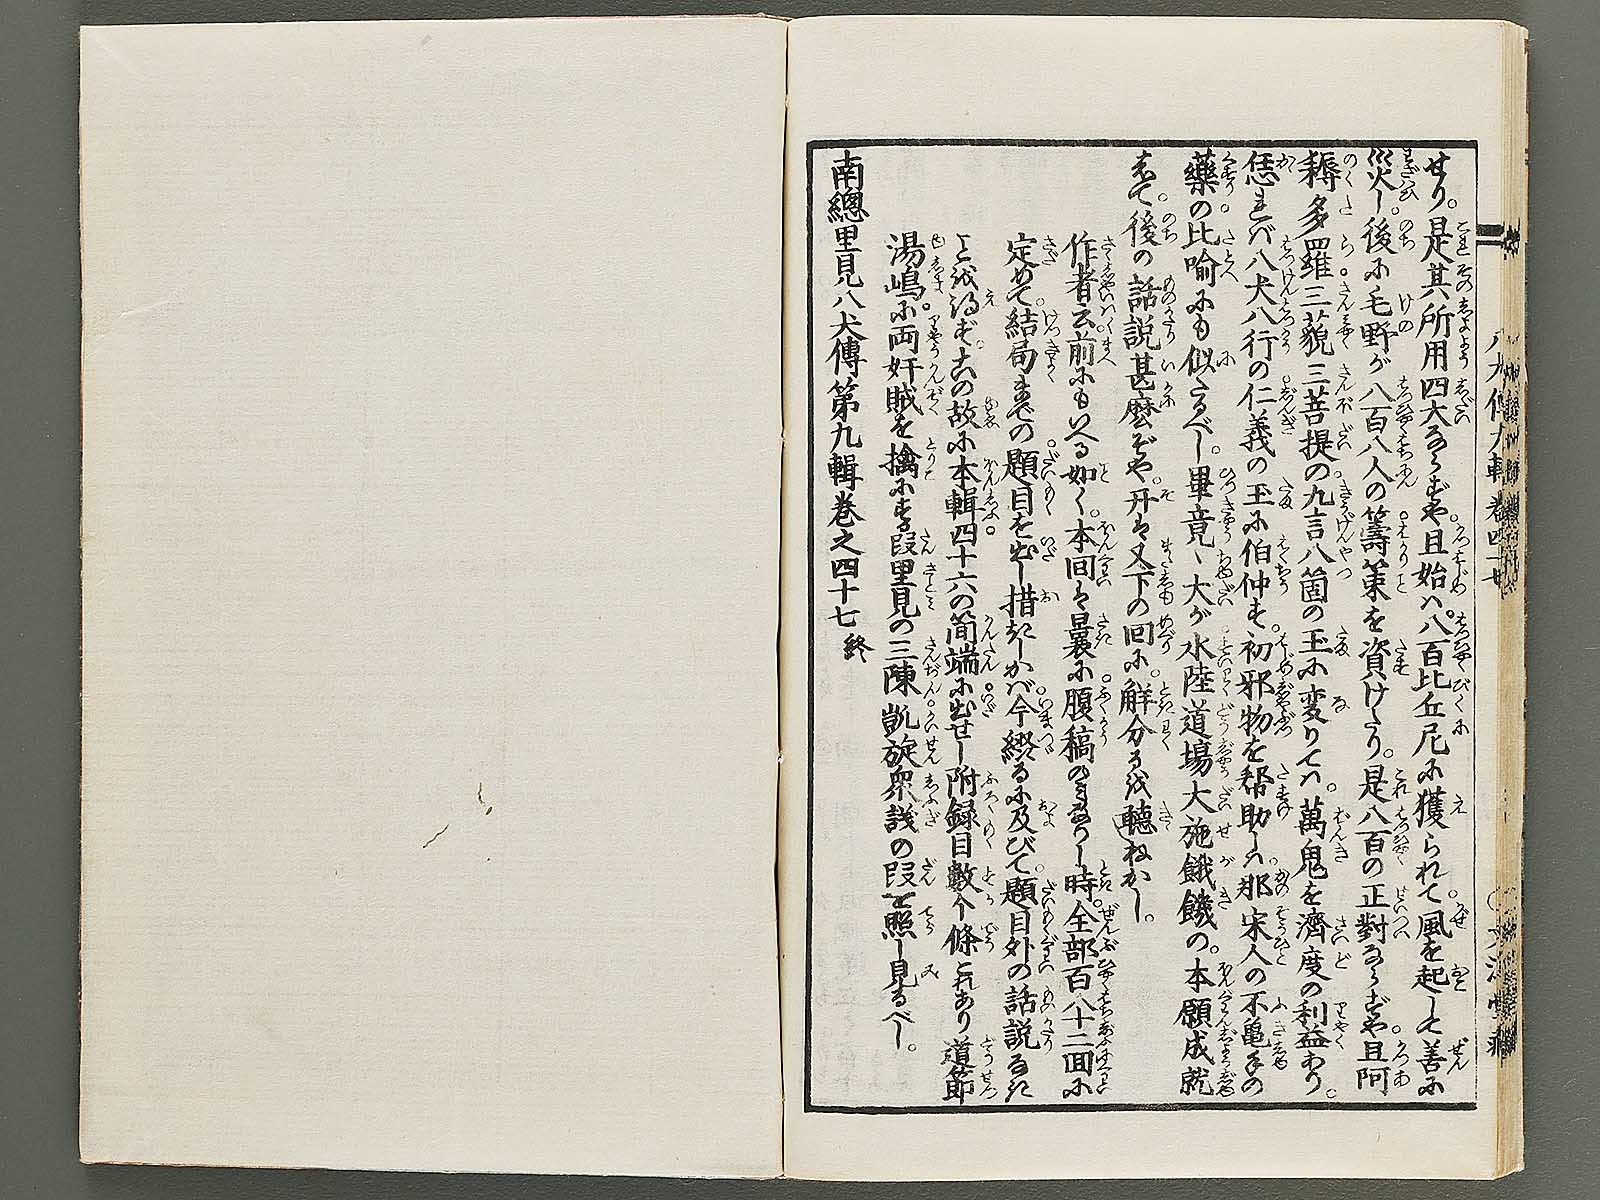 せり。是其所用四大ならずや。且始ハ。八百比丘尼に獲られて。風を起して善に
災し。後に毛野が八百八人の籌策を資けたり。是八百の正對ならずや。且阿
耨多羅三藐三菩提の九言八箇の玉に変りてハ。萬鬼を濟度の利益あり。
恁れバ八犬八行の仁義の玉に伯仲す。初邪物を帮助しハ。那宋人の不亀手の
藥の比喩にも似たるべし。畢竟丶大が水陸道場大施餓鬼の。本願成就
して。後の話説甚麼ぞや。开ハ又下の回に。解分るを聽ねかし。
作者云前にもいへる如く。本回ハ曩に腹稿のミなりし時。全部百八十二回に
定めて。結局までの題目を出し措きしかバ。今綴るに及びて。題目外の話説なき
ことを得ず。この故に本輯四十六の简端に出せし附録目數个條これあり道節
湯嶋に両奸賊を擒にする段里見の三陳凱旋衆議の段を照し見るべし。
南總里見八犬傳第九輯卷之四十七 終
八犬傳九輯 卷四十七